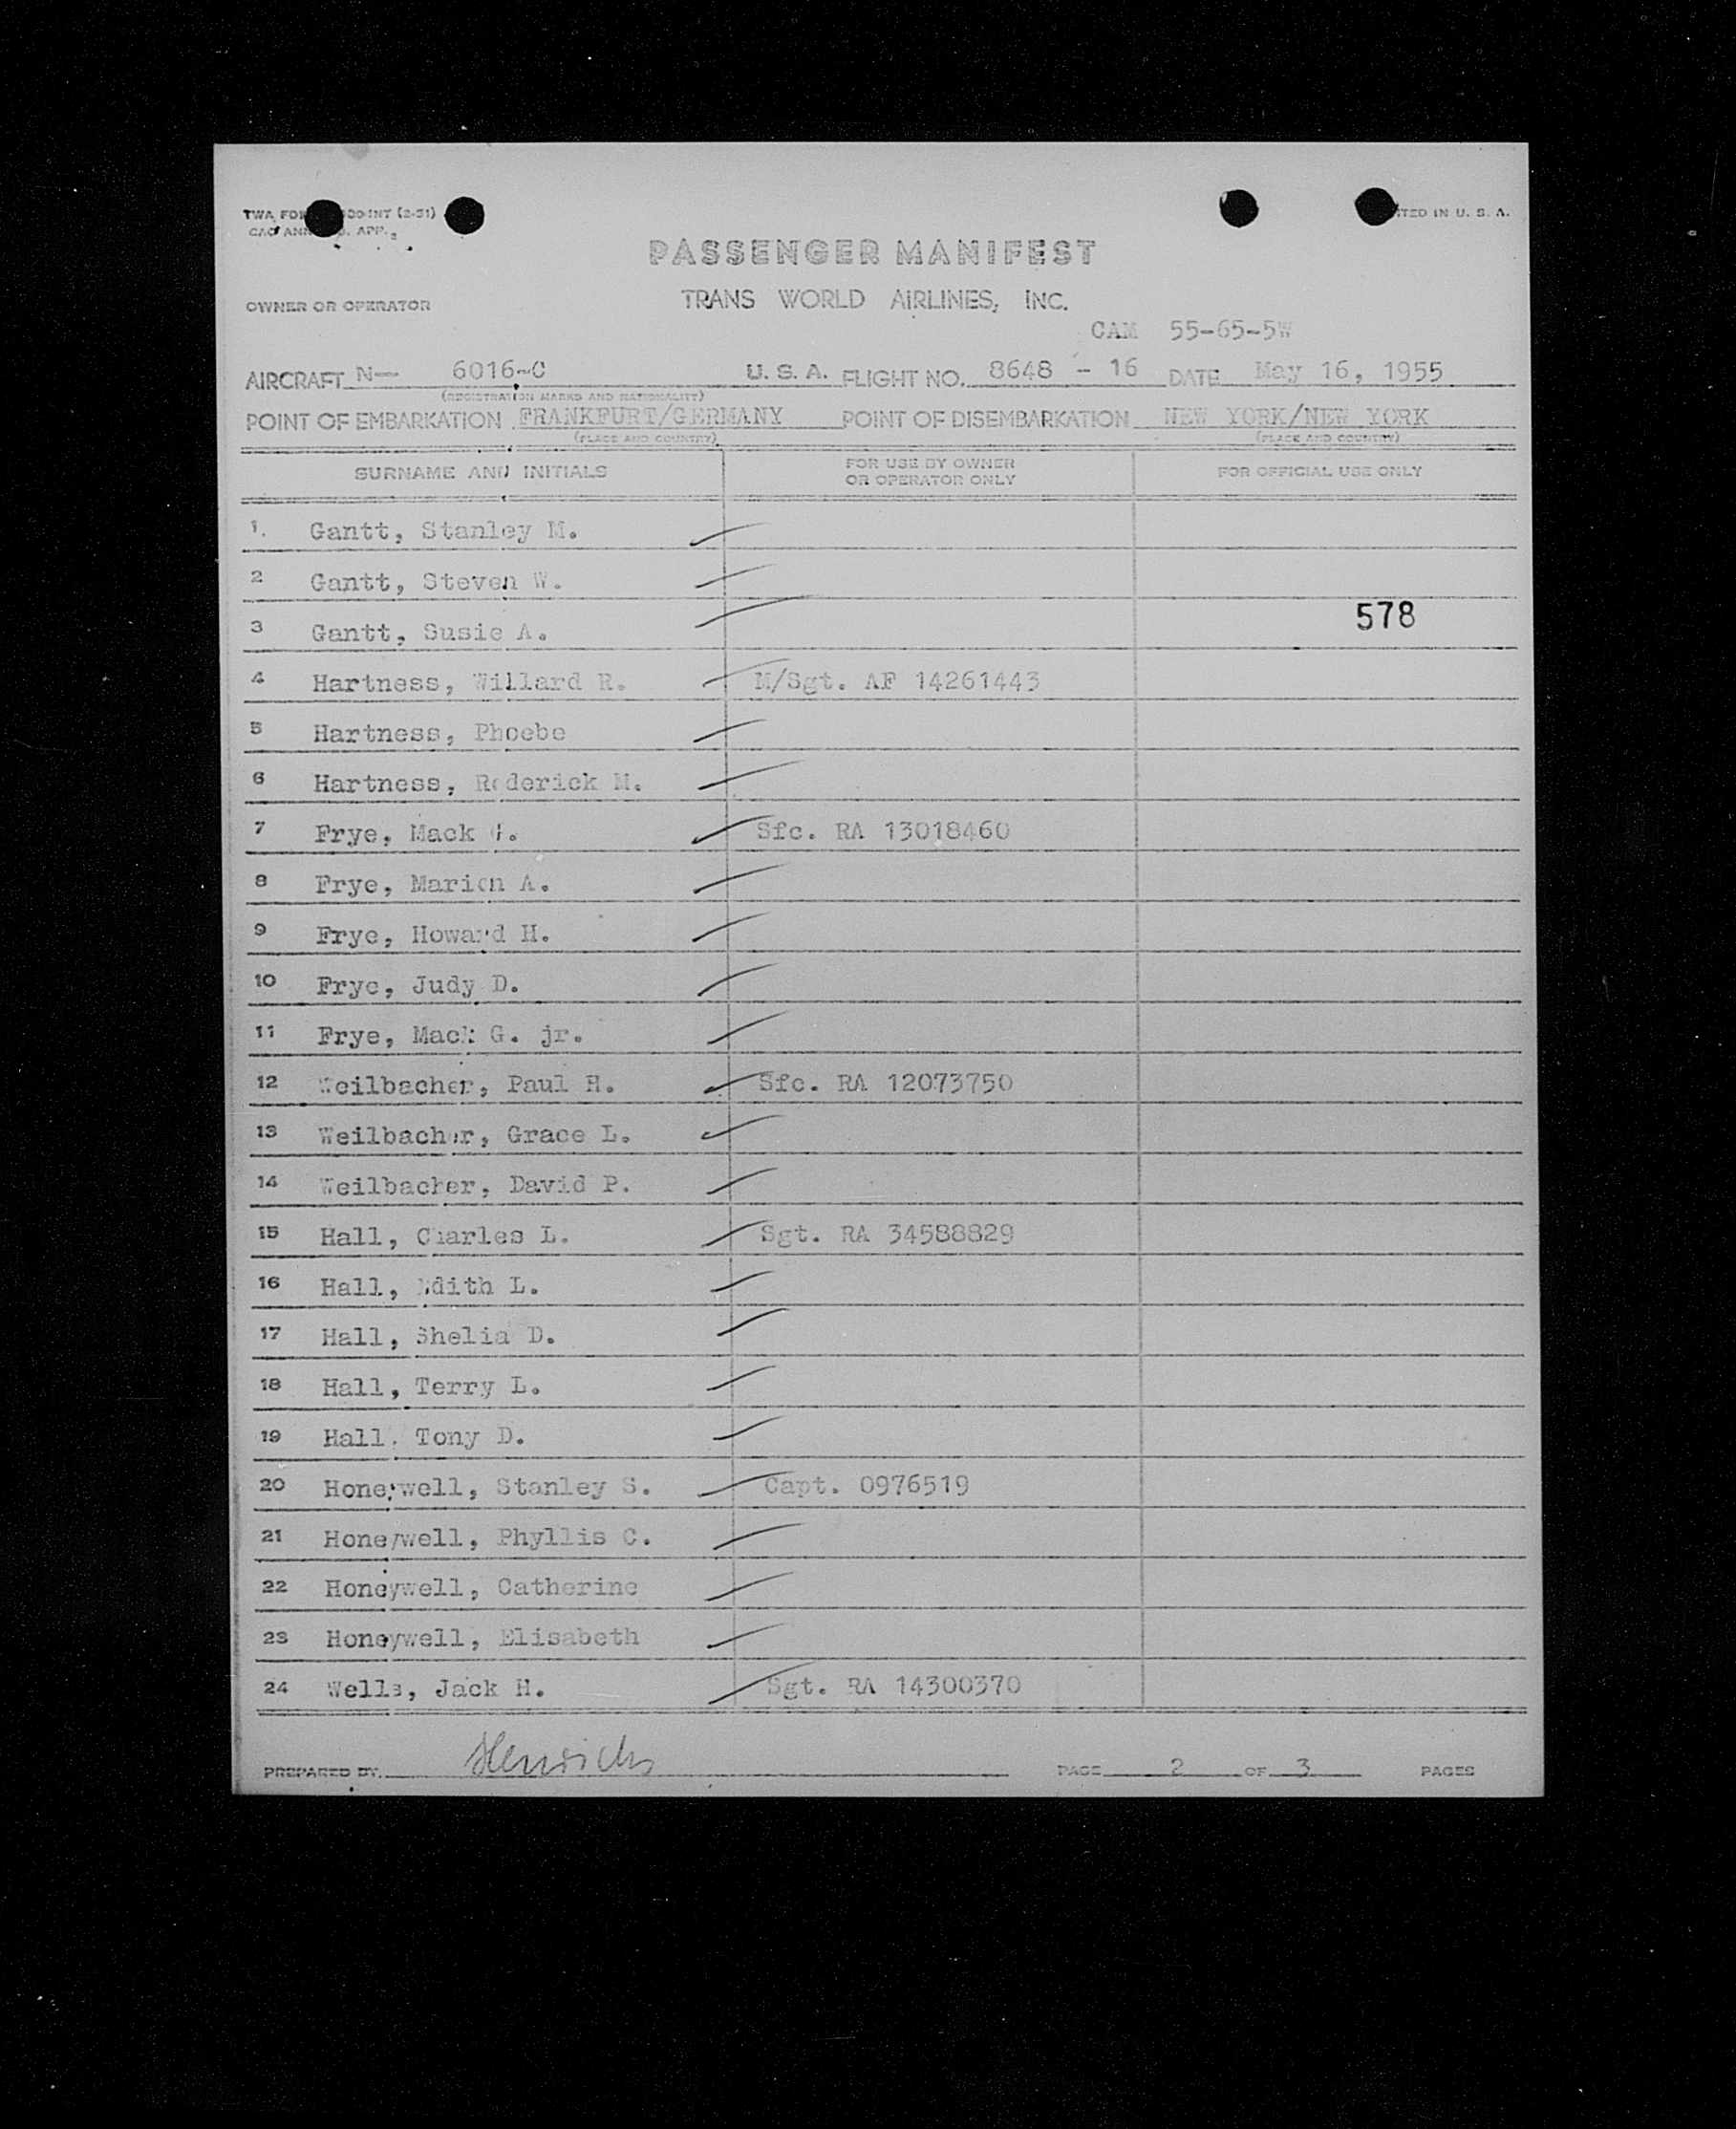 PASSENGER MANIFEST
OWNER OR OPERATOR TRANS WORLD AIRLINES, INC.
CAM 55-65-5W
AIRCRAFT N— 6016-C U. S. A. FLIGHT NO. 8648 - 16 DATE May 16, 1955
(REGISTRATION MARKS AND NATIONALITY)
POINT OF EMBARKATION FRANKFURT/GERMANY POINT OF DISEMBARKATION NEW YORK/NEW YORK
(PLACE AND COUNTRY) (PLACE AND COUNTRY)
SURNAME AND INITIALS FOR USE BY OWNER OR OPERATOR ONLY FOR OFFICIAL USE ONLY
1. Gantt, Stanley M.
2 Gantt, Steven W.
578
3 Gantt, Susie A.
4 Hartness, Willard R. M/Sgt. AF 14261443
5 Hartness, Phoebe
6 Hartness, Roderick M.
7 Frye, Mack G. Sfc. RA 13018460
8 Frye, Marion A.
9 Frye, Howard H.
10 Frye, Judy D.
11 Frye, Mack G. jr.
12 Weilbacher, Paul H. Sfc. RA 12073750
13 Weilbacher, Grace L.
14 Weilbacher, David P.
15 Hall, Charles L. Sgt. RA 34588829
16 Hall, Edith L.
17 Hall, Shelia D.
18 Hall, Terry L.
19 Hall, Tony D.
20 Honeywell, Stanley S. Capt. 0976519
21 Honeywell, Phyllis C.
22 Honeywell, Catherine
23 Honeywell, Elisabeth
24 Wells, Jack H. Sgt. RA 14300370
PREPARED BY Henrichs PAGE 2 OF 3 PAGES